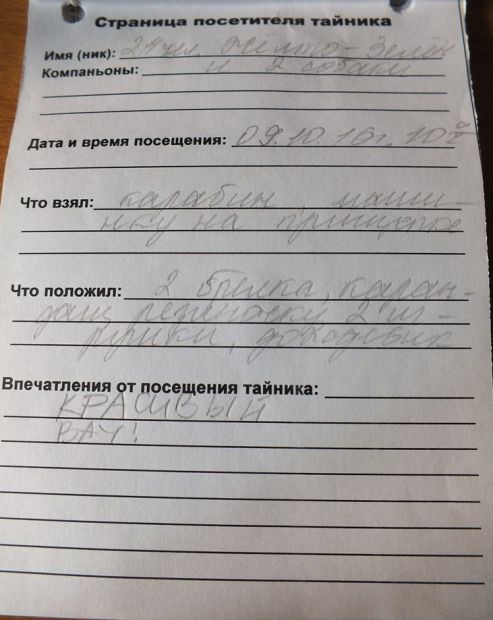 Страница посетителя тайника
Имя (ник): 24 чел. Жёлто-Зелён
Компаньоны: и 2 собаки
Дата и время посещения: 09.10.16г. 10 ч
Что взял: карабин, маши-
нку на прищепке
Что положил: 2 брелка, каран-
даш резиночку 2 ш-
рушки, дождевик
Впечатления от посещения тайника:
КРАСИВЫЙ
ВАУ!